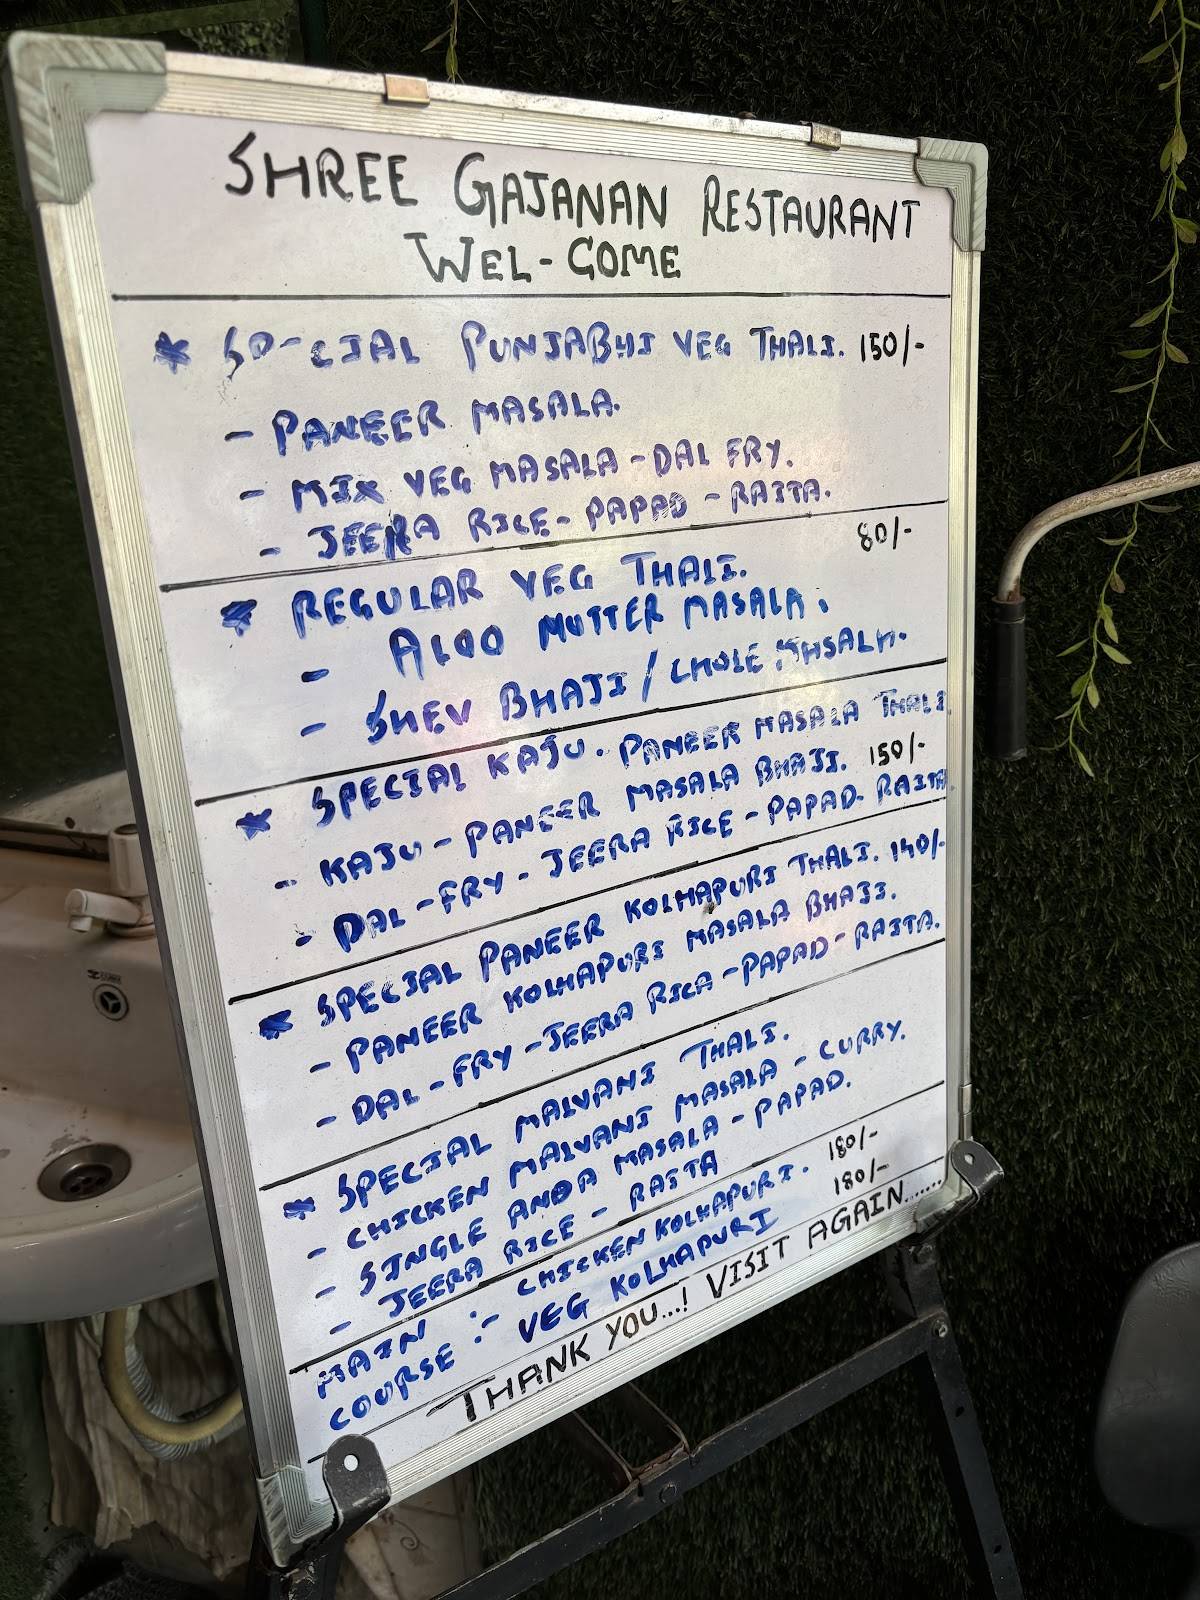 SHREE GAJANAN RESTAURANT
WEL-COME
* SP-CIAL PUNJABHI VEG THALI. 150/-
- PANEER MASALA.
- MIX VEG MASALA - DAL FRY.
- JEERA RICE - PAPAD - RAITA.
* REGULAR VEG THALI. 80/-
- ALOO MUTTER MASALA.
- SHEV BHAJI / CHOLE MASALA.
* SPECIAL KAJU. PANEER MASALA THALI
- KAJU - PANEER MASALA BHAJI. 150/-
- DAL - FRY - JEERA RICE - PAPAD - RAITA
* SPECIAL PANEER KOLHAPURI THALI. 140/-
- PANEER KOLHAPURI MASALA BHAJI.
- DAL - FRY - JEERA RICA - PAPAD - RAITA.
* SPECIAL MALVANI THALI.
- CHICKEN MALVANI MASALA - CURRY.
- SINGLE ANDA MASALA - PAPAD.
- JEERA RICE - RAITA
MAIN :- CHICKEN KOLHAPURI. 180/-
COURSE :- VEG KOLHAPURI 180/-
THANK YOU...! VISIT AGAIN.......